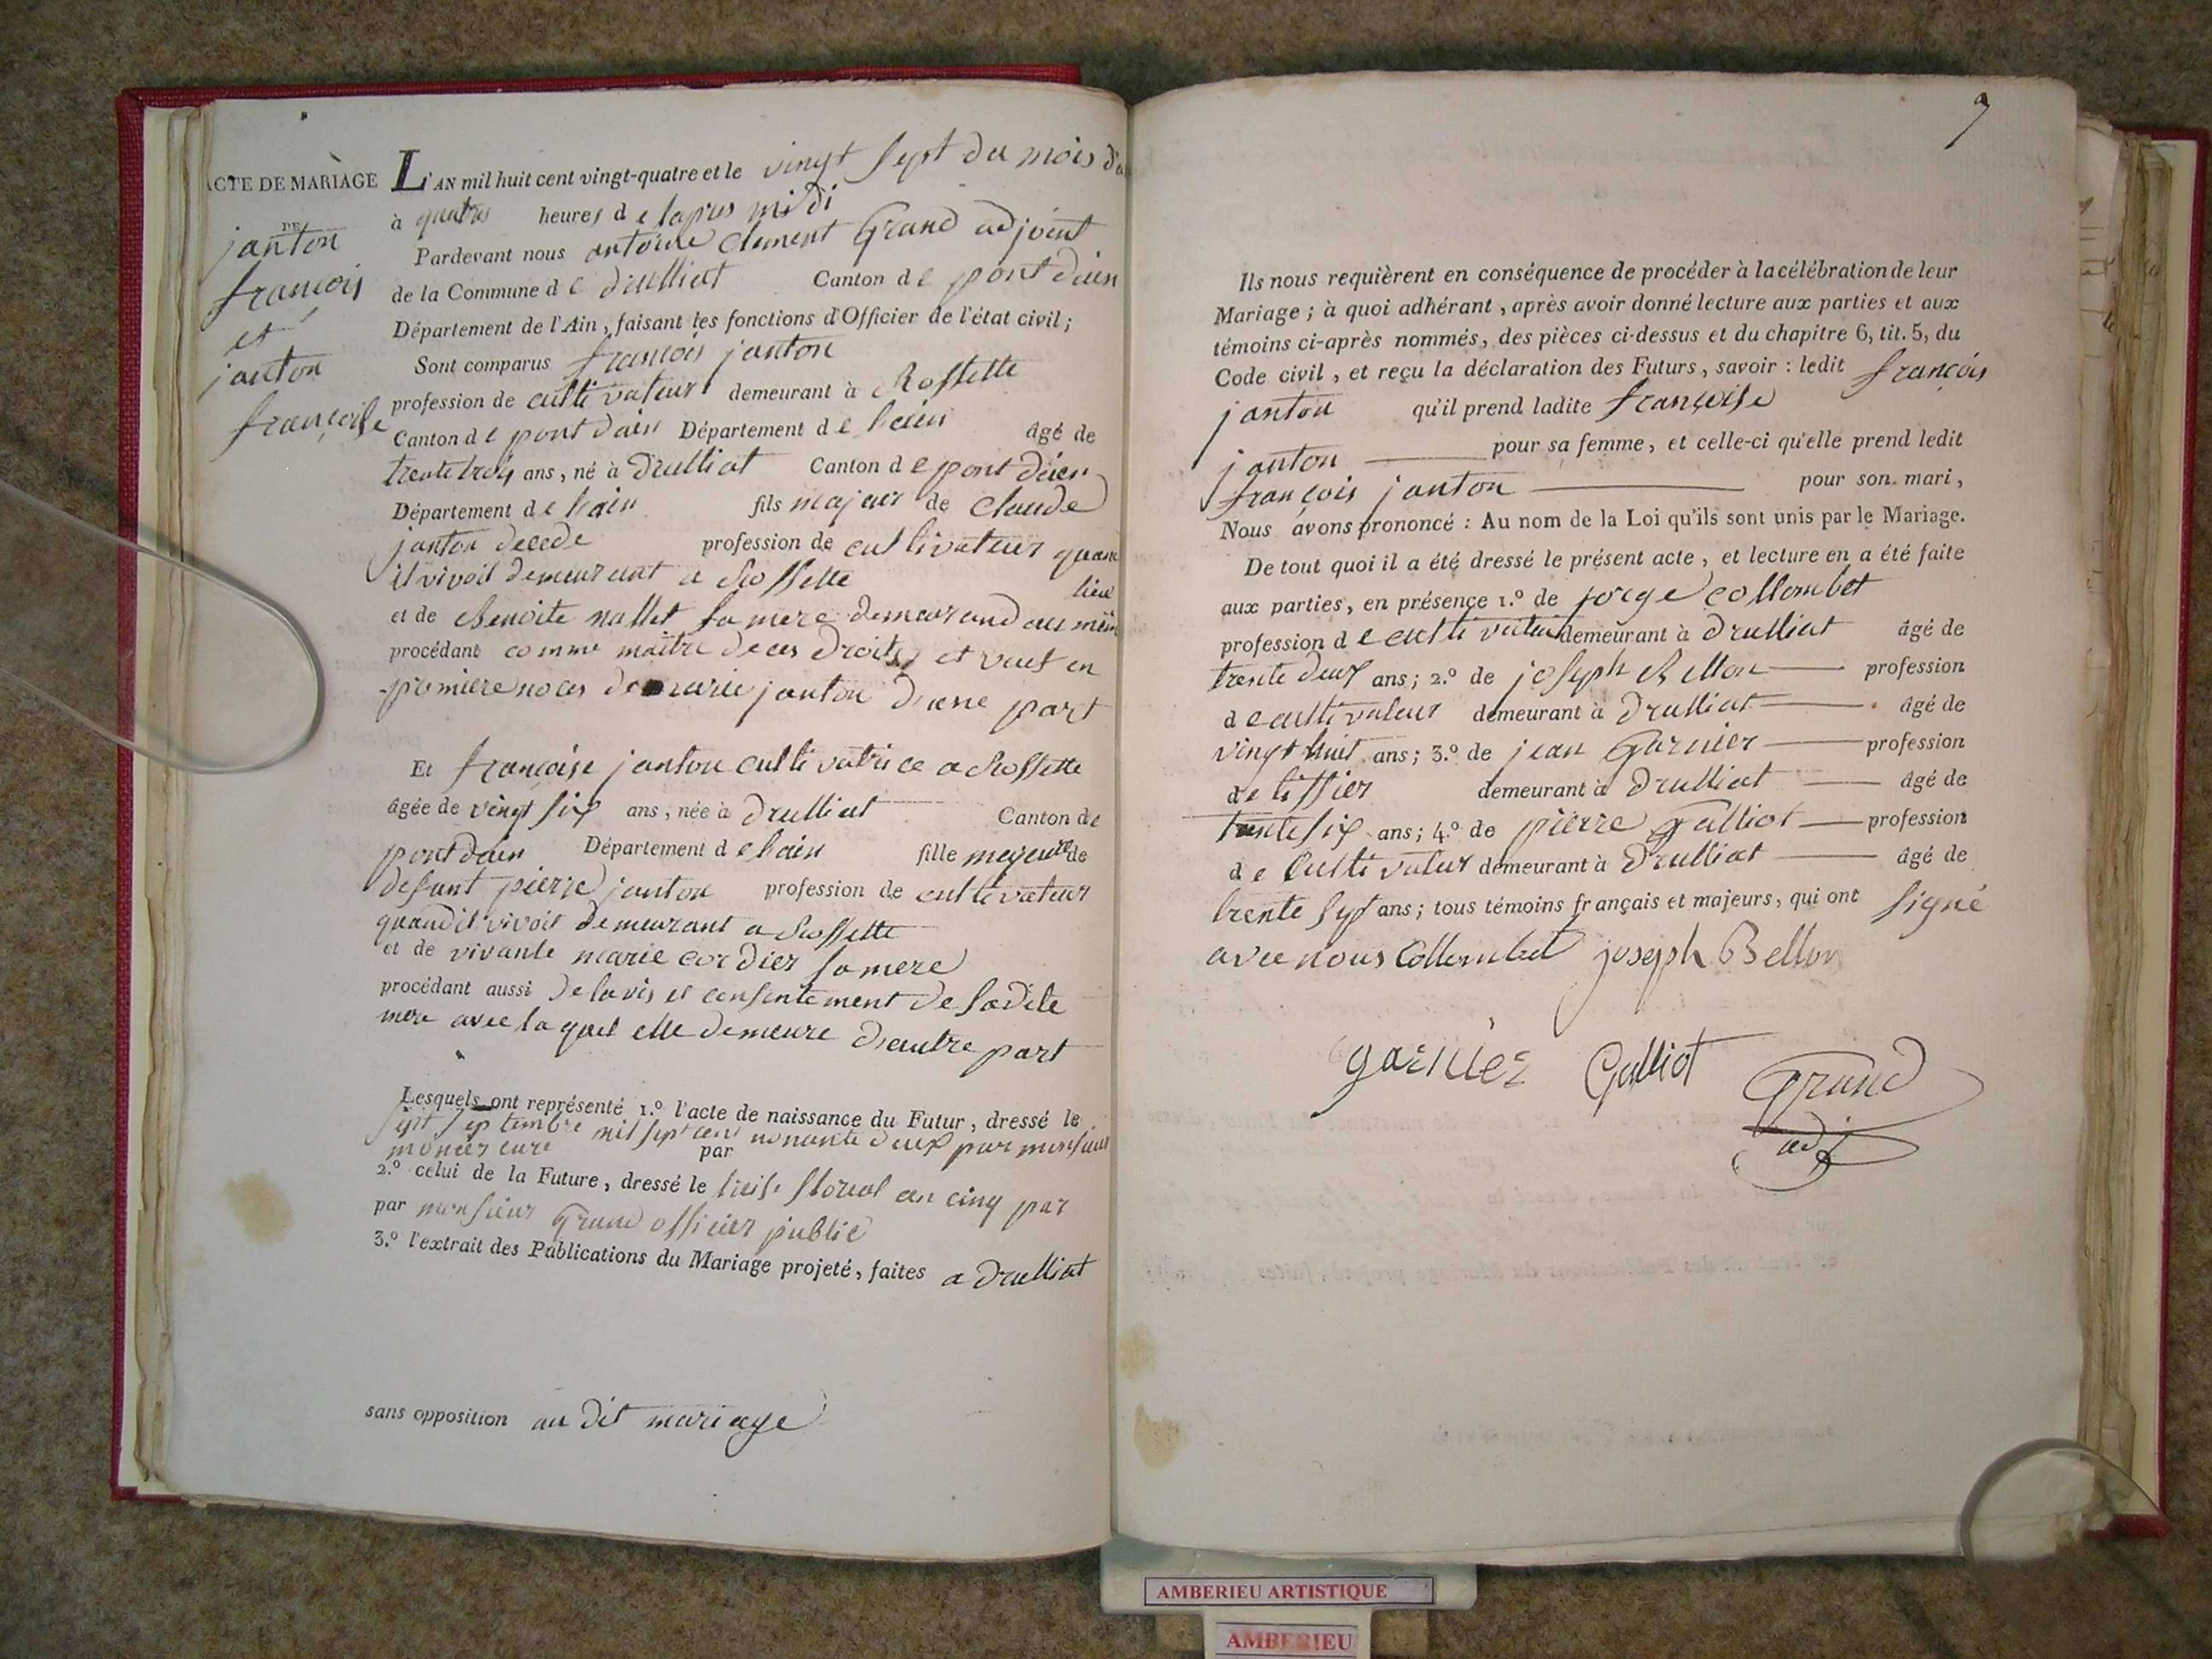 ACTE DE MARIAGE
DE
janton
françois
et
janton
françoise
L'AN mil huit cent vingt-quatre et le vingt sept du mois
à quatre heures de lapres midi
Pardevant nous antoine Clement Grand adjoint
de la Commune de druilliat Canton de pont dain
Département de l'Ain, faisant les fonctions d'Officier de l'état civil;
Sont comparus françois janton
profession de cultivateur demeurant à Rossette
Canton de pont dain Département de lain âgé de
trente trois ans, né à Drulliat Canton de pont dain
Département de lain fils majeur de Claude
janton decede profession de cultivateur quan
il vivoit demeurant a Rossette lieu
et de Benoite nallet sa mere demeurand au mem
procédant comme maitre de ces droits et veuf en
premiere noces de marie janton d'une part
Et françoise janton cultivatrice a Rossette
âgée de vingt six ans, née à Drulliat Canton de
pont dain Département de lain fille majeure de
defunt pierre janton profession de cultivateur
quand il vivoit demeurant a Rossette
et de vivante marie cordier sa mere
procédant aussi de lavis et consentement de sadite
mere avec laquel elle demeure d'autre part
Lesquels ont représenté 1.º l'acte de naissance du Futur, dressé le
sept septembre mil sept cent nonante deux par monsieur
cure par
2.º celui de la Future, dressé le treise floreal an cinq par
par monsieur Grand officier public
3.º l'extrait des Publications du Mariage projeté, faites a Drulliat
sans opposition au dit mariage
9
Ils nous requièrent en conséquence de procéder à la célébration de leur
Mariage; à quoi adhérant, après avoir donné lecture aux parties et aux
témoins ci-après nommés, des pièces ci-dessus et du chapitre 6, tit. 5, du
Code civil, et reçu la déclaration des Futurs, savoir: ledit françois
janton qu'il prend ladite françoise
janton pour sa femme, et celle-ci qu'elle prend ledit
françois janton pour son mari,
Nous avons prononcé: Au nom de la Loi qu'ils sont unis par le Mariage.
De tout quoi il a été dressé le présent acte, et lecture en a été faite
aux parties, en présence 1.º de jorge collombet
profession de cultivateur demeurant à Drulliat âgé de
trente deux ans; 2.º de joseph Bellon profession
de cultivateur demeurant à Drulliat âgé de
vingt huit ans; 3.º de jean Garnier profession
de tissier demeurant à Drulliat âgé de
trente six ans; 4.º de pierre Galliot profession
de Cultivateur demeurant à Drulliat âgé de
trente sept ans; tous témoins français et majeurs, qui ont signé
avec nous Collembet joseph Bellon
garnier Galliot Grand
adj
AMBERIEU ARTISTIQUE
AMBERIEU